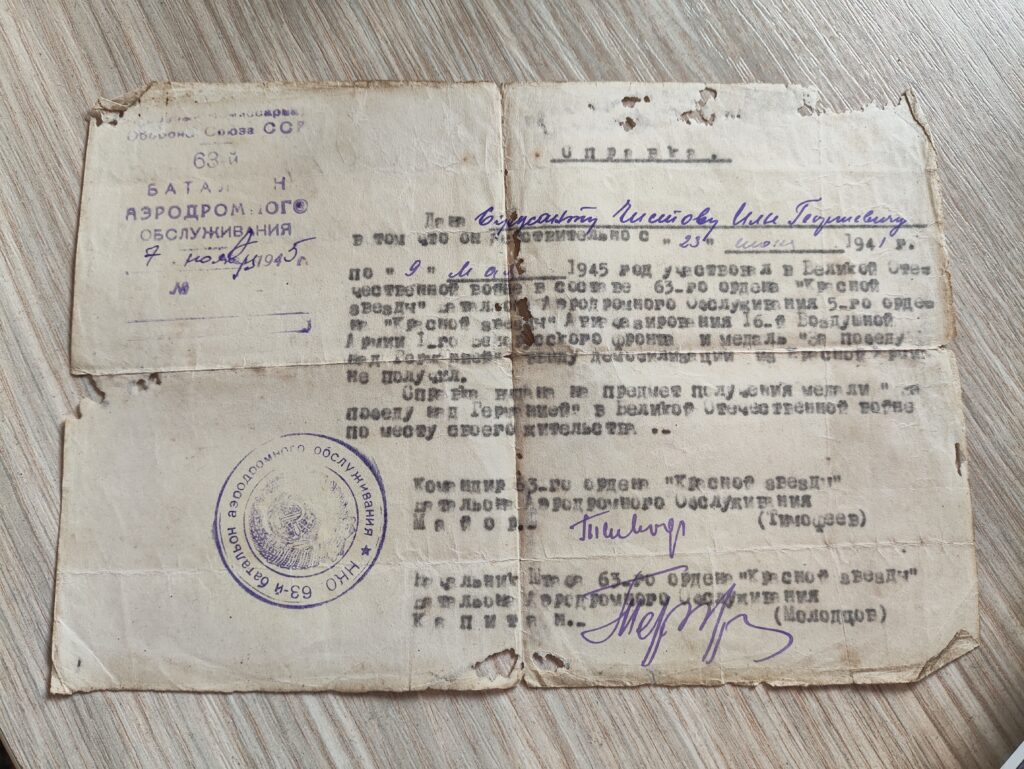 Обороны Союза ССР
63-й
БАТАЛ Н
АЭРОДРОМ ОГО
ОБСЛУЖИВАНИЯ
7 ноября 1945 г.
№
Справка.
Дана Сержанту Чистову Илье Георгиевичу
в том что он действительно с "23" июня 1941 г.
по "9" Мая 1945 год участвовал в Великой Оте-
чественной войне в составе 63-го ордена "Красной
звезды" Батальона Аеродромного Обслуживания 5-го орде-
на "Красной звезды" Авиабазирования 16-й Воздушной
Армии 1-го Белорусского фронта и медаль "За победу
над Германией" ввиду демобилизации из Красной Армии
не получил.
Справка выдана на предмет получения медали "За
победу над Германией" в Великой Отечественной войне
по месту своего жительства.
Командир 63-го ордена "Красной звезды"
Батальона Аеродромного Обслуживания
Майор (Тимофеев)
Начальник Штаба 63-го ордена "Красной звезды"
Батальона Аеродромного Обслуживания
Капитан. (Молодцов)
НКО 63-й батальон аэродромного обслуживания